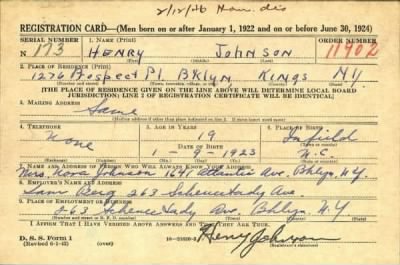 2/12/26 Hon. dis
REGISTRATION CARD—(Men born on or after January 1, 1922 and on or before June 30, 1924)
SERIAL NUMBER 1. NAME (Print) ORDER NUMBER
N 173 HENRY JOHNSON 11902
2. PLACE OF RESIDENCE (Print)
1276 Prospect Pl. BKLYN, KINGS NY
[THE PLACE OF RESIDENCE GIVEN ON THE LINE ABOVE WILL DETERMINE LOCAL BOARD
JURISDICTION; LINE 2 OF REGISTRATION CERTIFICATE WILL BE IDENTICAL]
3. MAILING ADDRESS
Same
4. TELEPHONE 5. AGE IN YEARS 6. PLACE OF BIRTH
None 19 Enfield
DATE OF BIRTH
1-9-1923 N.C.
7. NAME AND ADDRESS OF PERSON WHO WILL ALWAYS KNOW YOUR ADDRESS
Mrs. Nora Johnson 1641 Atlantic Ave. Bklyn, N.Y.
8. EMPLOYER'S NAME AND ADDRESS
Sam Berg 263 Schenectady Ave
9. PLACE OF EMPLOYMENT OR BUSINESS
263 Schenectady Ave. Bklyn. N.Y
I AFFIRM THAT I HAVE VERIFIED ABOVE ANSWERS AND THAT THEY ARE TRUE.
D. S. S. Form 1
Henry Johnson